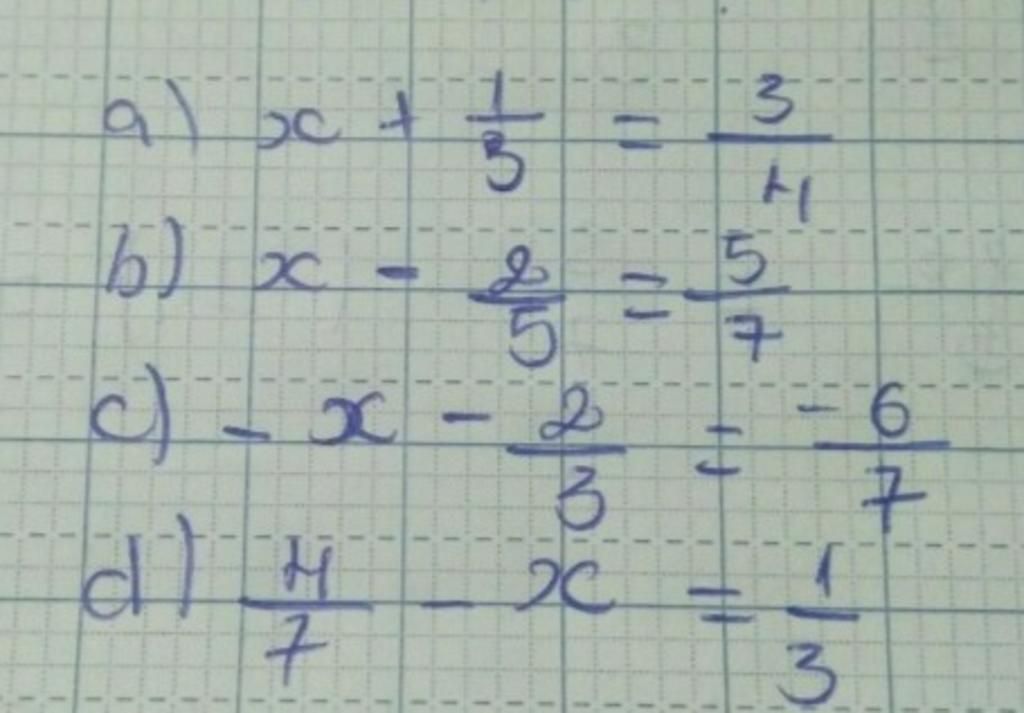 a) x + 1/3 = 3/4
b) x - 2/5 = 5/7
c) - x - 2/3 = -6/7
d) 4/7 - x = 1/3